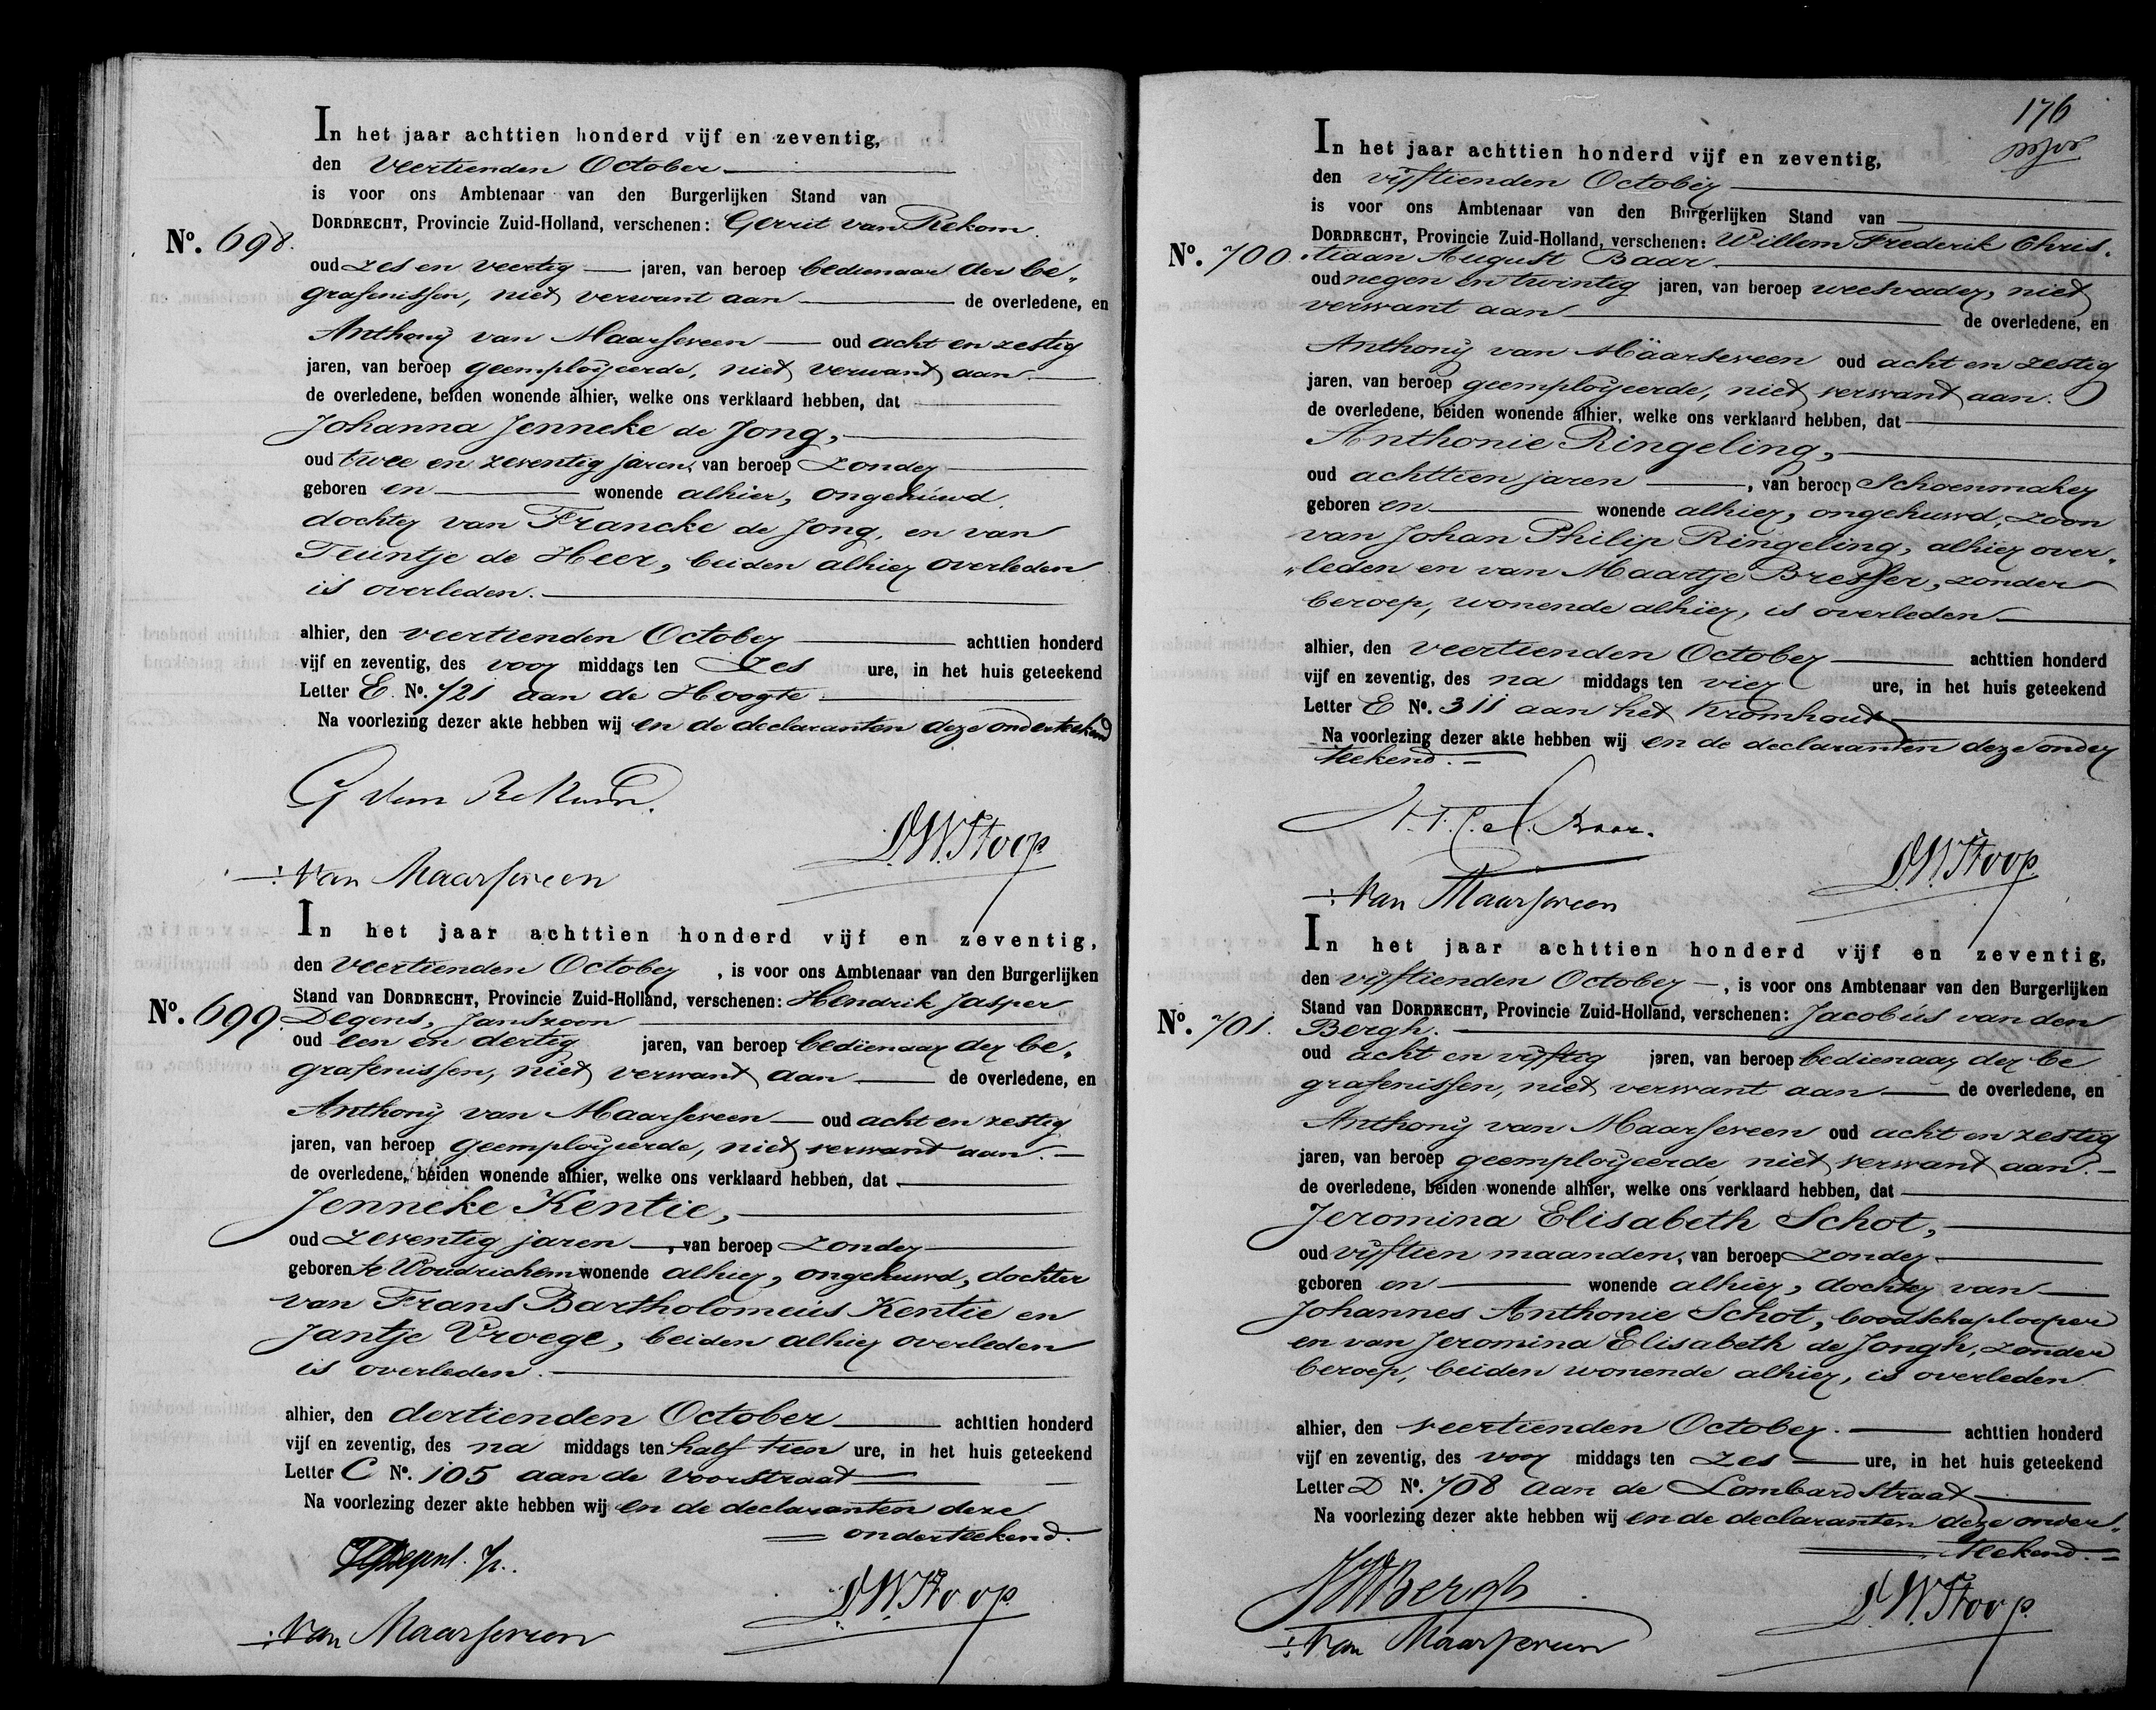 In het jaar achttien honderd vijf en zeventig,
den Veertienden October
is voor ons Ambtenaar van den Burgerlijken Stand van
DORDRECHT, Provincie Zuid-Holland, verschenen: Gerrit van Rekom
No. 698.
oud zes en veertig jaren, van beroep bedienaar der be„
grafenissen, niet verwant aan de overledene, en
Anthonij van Maarseveen oud acht en zestig
jaren, van beroep geemploijeerde, niet verwant aan
de overledene, beiden wonende alhier, welke ons verklaard hebben, dat
Johanna Jenneke de Jong,
oud twee en zeventig jaren, van beroep zonder
geboren en wonende alhier, ongehuwd
dochter van Francke de Jong, en van
Teuntje de Heer, beiden alhier overleden
is overleden.
alhier, den veertienden October achttien honderd
vijf en zeventig, des voor middags ten Zes ure, in het huis geteekend
Letter E No. 721 aan de Hoogte
Na voorlezing dezer akte hebben wij en de declaranten deze onderteekend
G van Rekum.
D.W. Stoop.
van Maarseveen
In het jaar achttien honderd vijf en zeventig,
den Veertienden October, is voor ons Ambtenaar van den Burgerlijken
Stand van DORDRECHT, Provincie Zuid-Holland, verschenen: Hendrik Jasper
No. 699. Degens, Janszoon
oud een en dertig jaren, van beroep bedienaar der be„
grafenissen, niet verwant aan de overledene, en
Anthonij van Maarseveen oud acht en zestig
jaren, van beroep geemploijeerde, niet verwant aan.
de overledene, beiden wonende alhier, welke ons verklaard hebben, dat
Jenneke Kentie,
oud zeventig jaren, van beroep zonder
geboren te Woudrichem wonende alhier, ongehuwd, dochter
van Frans Bartholomeus Kentie en
Jantje Vroege, beiden alhier overleden
is overleden.
alhier, den dertienden October achttien honderd
vijf en zeventig, des na middags ten half tien ure, in het huis geteekend
Letter C No. 105 aan de Voorstraat
Na voorlezing dezer akte hebben wij en de declaranten deze
onderteekend.
HJDegens. Jz.
D.W. Stoop.
van Maarseveen
176
In het jaar achttien honderd vijf en zeventig,
den vijftienden October
is voor ons Ambtenaar van den Burgerlijken Stand van
DORDRECHT, Provincie Zuid-Holland, verschenen: Willem Frederik Chris„
No. 700. „tiaan August Baar
oud negen en twintig jaren, van beroep weesvader, niet
verwant aan de overledene, en
Anthonij van Maarseveen oud acht en zestig
jaren, van beroep geemploijeerde, niet verwant aan.
de overledene, beiden wonende alhier, welke ons verklaard hebben, dat
Anthonie Ringeling,
oud achttien jaren, van beroep Schoenmaker
geboren en wonende alhier, ongehuwd, zoon
van Johan Philip Ringeling, alhier over„
„leden en van Maartje Bresser, zonder
beroep, wonende alhier, is overleden
alhier, den veertienden October achttien honderd
vijf en zeventig, des na middags ten vier ure, in het huis geteekend
Letter E No. 311 aan het Kromhout
Na voorlezing dezer akte hebben wij en de declaranten deze onder
teekend.
W.F.C.A. Baar.
D.W. Stoop.
van Maarseveen
In het jaar achttien honderd vijf en zeventig,
den vijftienden October, is voor ons Ambtenaar van den Burgerlijken
Stand van DORDRECHT, Provincie Zuid-Holland, verschenen: Jacobús van den
No. 701. Bergh.
oud acht en vijftig jaren, van beroep bedienaar der be
grafenissen, niet verwant aan de overledene, en
Anthonij van Maarseveen oud acht en zestig
jaren, van beroep geemploijeerde niet verwant aan.
de overledene, beiden wonende alhier, welke ons verklaard hebben, dat
Jeromina Elisabeth Schot,
oud vijftien maanden, van beroep zonder
geboren en wonende alhier, dochter van
Johannes Anthonie Schot, boodschaplooper
en van Jeromina Elisabeth de Jongh, zonder
beroep, beiden wonende alhier, is overleden
alhier, den veertienden October. achttien honderd
vijf en zeventig, des voor middags ten Zes ure, in het huis geteekend
Letter D No. 708 aan de Lombardstraat
Na voorlezing dezer akte hebben wij en de declaranten deze onder„
teekend.
Bergh
D.W. Stoop.
van Maarseveen